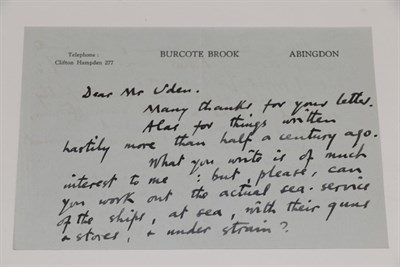 Telephone:
Clifton Hampden 277
BURCOTE BROOK
ABINGDON
Dear Mr Uden.
Many thanks for your letter.
Alas for things written
hastily more than half a century ago.
What you write is of much
interest to me : but, please, can
you work out the actual sea-service
of the ships, at sea, with their guns
& stores, & under strain?